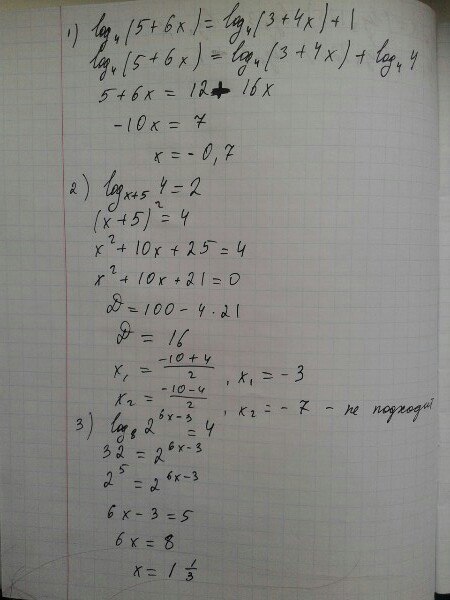 1) log₄(5+6x) = log₄(3+4x)+1
log₄(5+6x) = log₄(3+4x) + log₄4
5+6x = 12 + 16x
-10x = 7
x = -0,7
2) logₓ₊₅4 = 2
(x+5)² = 4
x²+10x+25 = 4
x²+10x+21 = 0
D = 100 - 4·21
D = 16
x₁ = (-10+4)/2, x₁ = -3
x₂ = (-10-4)/2, x₂ = -7 - не подходит
3) log₈2^(6x-3) = 4
32 = 2^(6x-3)
2⁵ = 2^(6x-3)
6x-3 = 5
6x = 8
x = 1 1/3